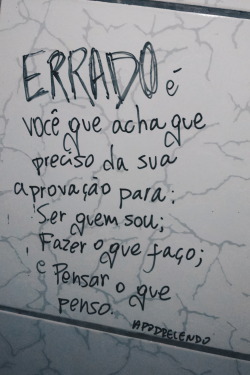 ERRADO é
você que acha que
preciso da sua
aprovação para:
Ser quem sou;
Fazer o que faço;
e Pensar o que
penso.
APODRECENDO